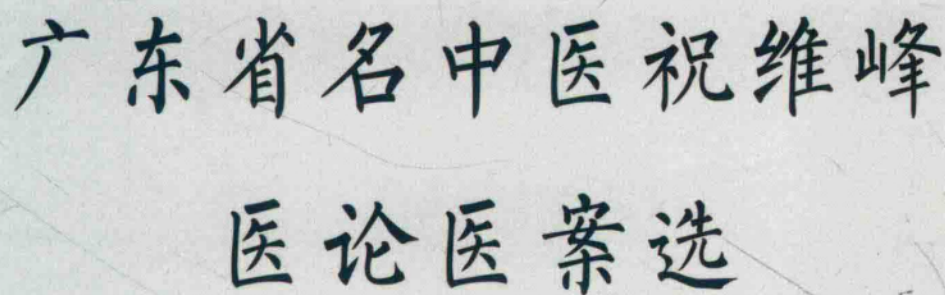 广东省名中医祝维峰
医论医案选